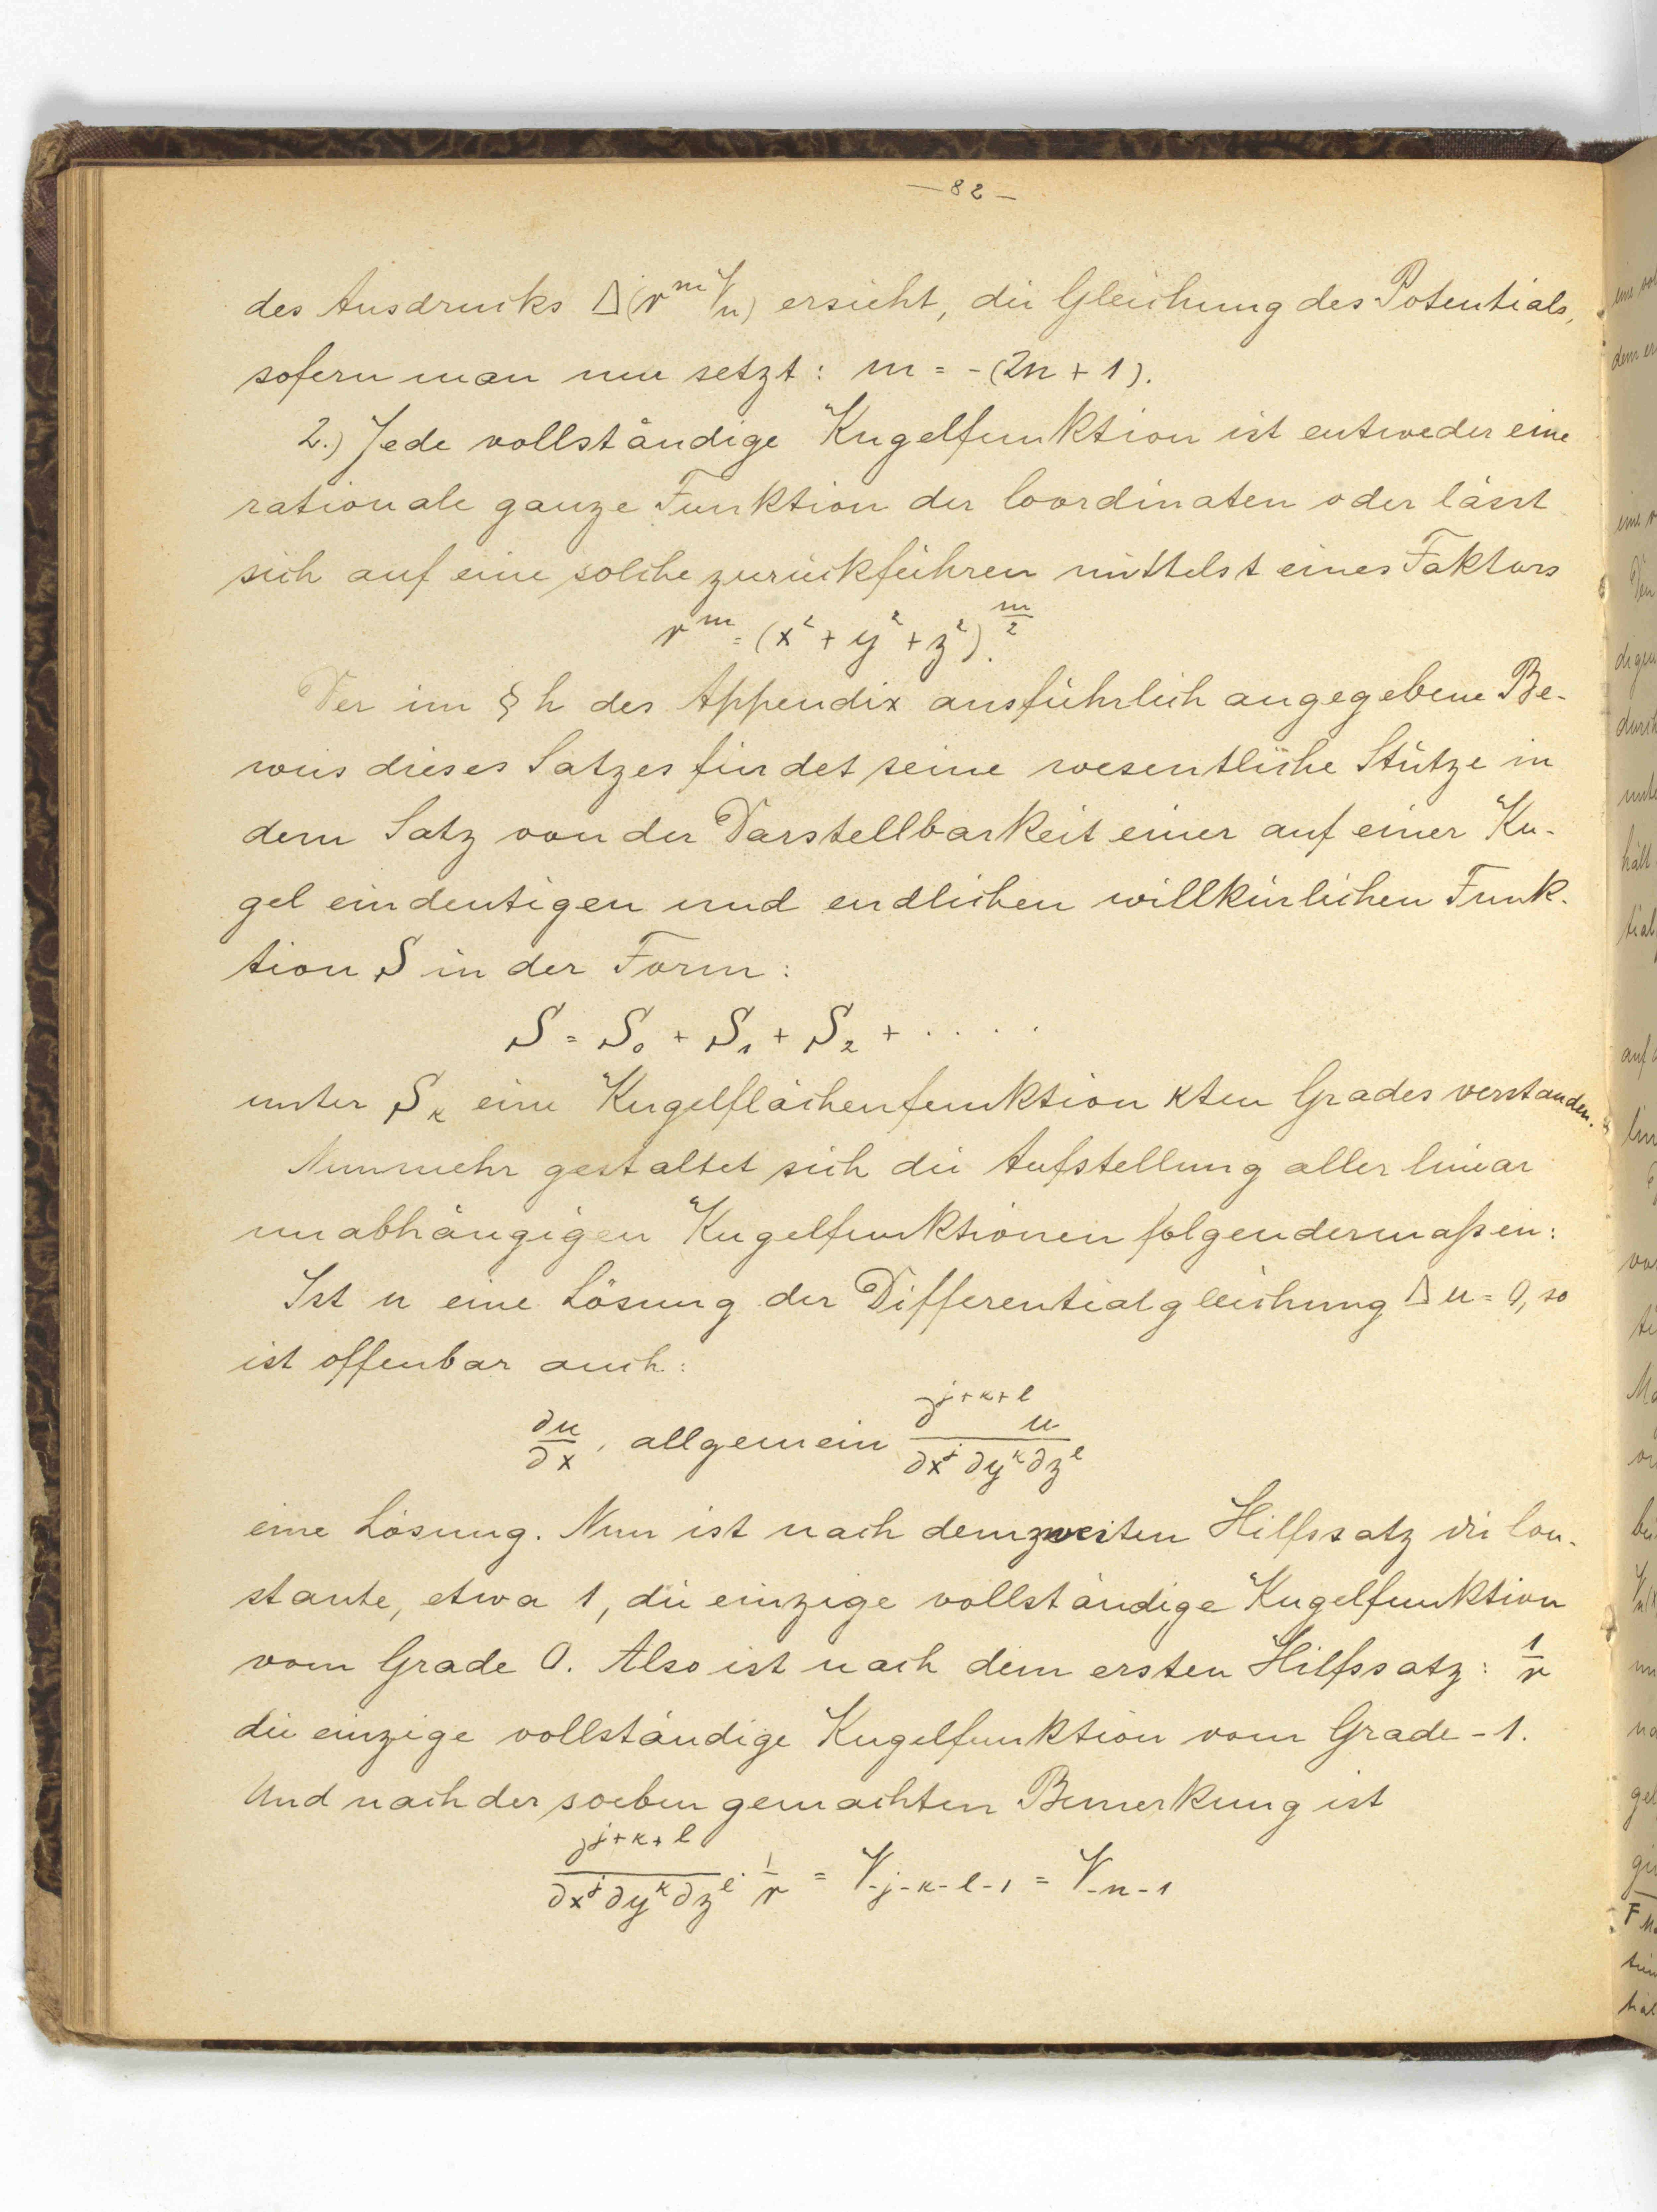 — 82 —
des Ausdrucks Δ(r^m V_n) ersieht, die Gleichung des Potentials,
sofern man nun setzt: m = -(2n + 1).
2.) Jede vollständige Kugelfunktion ist entweder eine
rationale ganze Funktion der Coordinaten oder lässt
sich auf eine solche zurückführen mittelst eines Faktors
r^m = (x² + y² + z²)^{m/2}.
Der im § h des Appendix ausführlich angegebene Be-
weis dieses Satzes findet seine wesentliche Stütze in
dem Satz von der Darstellbarkeit einer auf einer Ku-
gel eindeutigen und endlichen willkürlichen Funk-
tion S in der Form:
S = S_0 + S_1 + S_2 + . . . .
unter S_κ eine Kugelflächenfunktion κten Grades verstanden.
Nunmehr gestaltet sich die Aufstellung aller linear
unabhängigen Kugelfunktionen folgendermaßen:
Ist u eine Lösung der Differentialgleichung Δu = 0, so
ist offenbar auch:
∂u/∂x, allgemein ∂^{j+κ+l} u / ∂x^j ∂y^κ ∂z^l
eine Lösung. Nun ist nach dem zweiten Hilfssatz die Con-
stante, etwa 1, die einzige vollständige Kugelfunktion
vom Grade 0. Also ist nach dem ersten Hilfssatz: 1/r
die einzige vollständige Kugelfunktion vom Grade -1.
Und nach der soeben gemachten Bemerkung ist
∂^{j+κ+l} / ∂x^j ∂y^κ ∂z^l · 1/r = V_{-j-κ-l-1} = V_{-n-1}